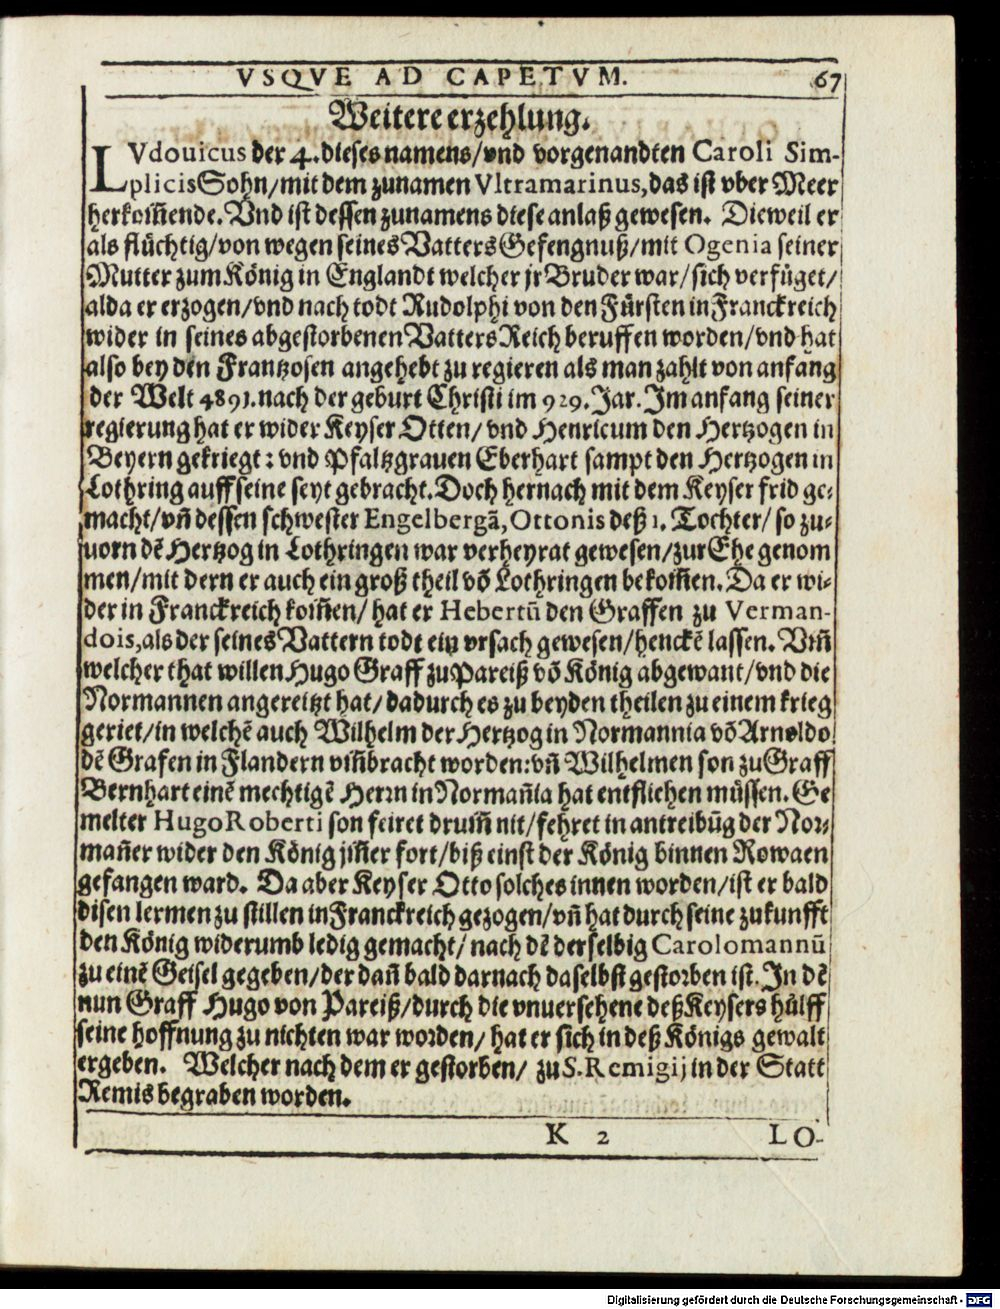 VSQVE AD CAPETVM. 67
Weitere erzehlung.
LVdouicus der 4. dieses namens/vnd vorgenandten Caroli Sim-
plicis Sohn/mit dem zunamen Vltramarinus,das ist vber Meer
herkom̃ende. Vnd ist dessen zunamens diese anlaß gewesen. Dieweil er
als flüchtig/von wegen seines Vatters Gefengnuß/mit Ogenia seiner
Mutter zum König in Englandt welcher jr Bruder war/sich verfüget/
alda er erzogen/vnd nach todt Rudolphi von den Fürsten in Franckreich
wider in seines abgestorbenen Vatters Reich beruffen worden/vnd hat
also bey den Frantzosen angehebt zu regieren als man zahlt von anfang
der Welt 4891. nach der geburt Christi im 929. Jar. Im anfang seiner
regierung hat er wider Keyser Otten/ vnd Henricum den Hertzogen in
Beyern gekriegt: vnd Pfaltzgrauen Eberhart sampt den Hertzogen in
Lothring auff seine seyt gebracht. Doch hernach mit dem Keyser frid ge-
macht/vñ dessen schwester Engelbergã, Ottonis deß 1. Tochter/ so zu-
uorn dẽ Hertzog in Lothringen war verheyrat gewesen/zur Ehe genom
men/mit dern er auch ein groß theil võ Lothringen bekom̃en. Da er wi-
der in Franckreich kom̃en/ hat er Hebertũ den Graffen zu Verman-
dois,als der seines Vattern todt ein vrsach gewesen/henckẽ lassen. Vm̃
welcher that willen Hugo Graff zu Pareiß võ König abgewant/vnd die
Normannen angereitzt hat/dadurch es zu beyden theilen zu einem krieg
geriet/in welchẽ auch Wilhelm der Hertzog in Normannia võ Arnoldo
dẽ Grafen in Flandern vm̃bracht worden: vñ Wilhelmen son zu Graff
Bernhart einẽ mechtigẽ Herrn in Normañia hat entfliehen müssen. Ge
melter Hugo Roberti son feiret drum̃ nit/fehret in antreibũg der Nor-
mañer wider den König jm̃er fort/biß einst der König binnen Rowaen
gefangen ward. Da aber Keyser Otto solches innen worden/ist er bald
disen lermen zu stillen in Franckreich gezogen/vñ hat durch seine zukunfft
den König widerumb ledig gemacht/ nach dẽ derselbig Carolomannũ
zu einẽ Geisel gegeben/der dañ bald darnach daselbst gestorben ist. In dẽ
nun Graff Hugo von Pareiß/durch die vnuersehene deß Keysers hülff
seine hoffnung zu nichten war worden/ hat er sich in deß Königs gewalt
ergeben. Welcher nach dem er gestorben/ zu S. Remigij in der Statt
Remis begraben worden.
K 2 LO-
Digitalisierung gefördert durch die Deutsche Forschungsgemeinschaft - DFG